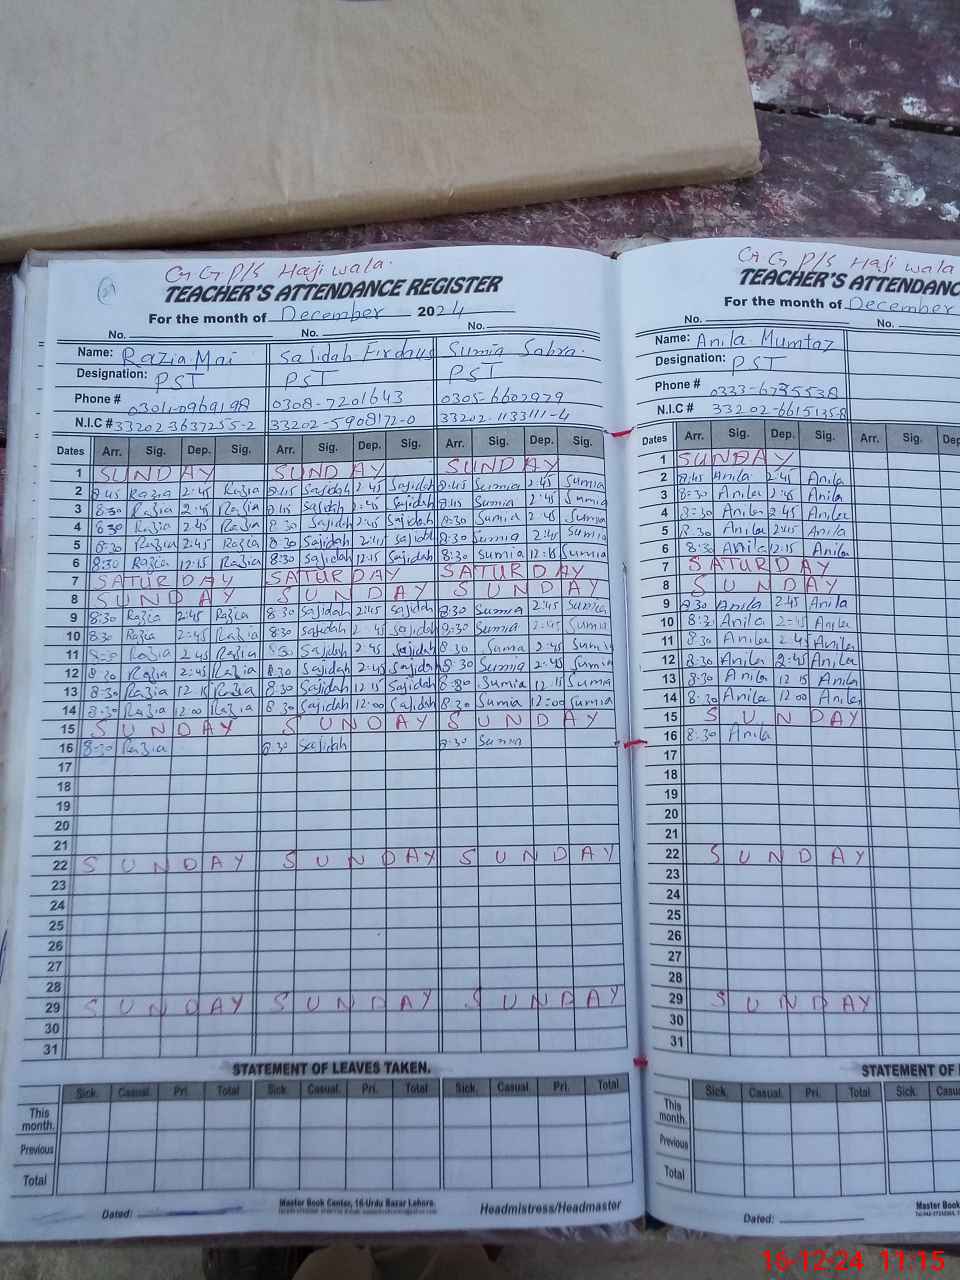 G G P/S Haji wala.
TEACHER'S ATTENDANCE REGISTER
For the month of December 2024
No. No. No.
Name: Razia Mai Sajidah Firdaus Sumia Sabra.
Designation: PST PST PST
Phone # 0304-0969198 0308-7201643 0305-6602979
N.I.C # 33202 3637255-2 33202-5908172-0 33202-1133111-4
Dates Arr. Sig. Dep. Sig. Arr. Sig. Dep. Sig. Arr. Sig. Dep. Sig.
1 SUNDAY SUNDAY SUNDAY
2 8:45 Razia 2:45 Razia 8:45 Sajidah 2:45 Sajidah 8:45 Sumia 2:45 Sumia
3 8:30 Razia 2:45 Razia 8:45 Sajidah 2:45 Sajidah 8:45 Sumia 2:45 Sumia
4 8:30 Razia 2:45 Razia 8:30 Sajidah 2:45 Sajidah 8:30 Sumia 2:45 Sumia
5 8:30 Razia 2:45 Razia 8:30 Sajidah 2:45 Sajidah 8:30 Sumia 2:45 Sumia
6 8:30 Razia 12:15 Razia 8:30 Sajidah 12:15 Sajidah 8:30 Sumia 12:15 Sumia
7 SATURDAY SATURDAY SATURDAY
8 SUNDAY SUNDAY SUNDAY
9 8:30 Razia 2:45 Razia 8:30 Sajidah 2:45 Sajidah 8:30 Sumia 2:45 Sumia
10 8:30 Razia 2:45 Razia 8:30 Sajidah 2:45 Sajidah 8:30 Sumia 2:45 Sumia
11 8:30 Razia 2:45 Razia 8:30 Sajidah 2:45 Sajidah 8:30 Sumia 2:45 Sumia
12 8:30 Razia 2:45 Razia 8:30 Sajidah 2:45 Sajidah 8:30 Sumia 2:45 Sumia
13 8:30 Razia 12:15 Razia 8:30 Sajidah 12:15 Sajidah 8:30 Sumia 12:15 Sumia
14 8:30 Razia 12:00 Razia 8:30 Sajidah 12:00 Sajidah 8:30 Sumia 12:00 Sumia
15 SUNDAY SUNDAY SUNDAY
16 8:30 Razia 8:30 Sajidah 8:30 Sumia
17
18
19
20
21
22 SUNDAY SUNDAY SUNDAY
23
24
25
26
27
28
29 SUNDAY SUNDAY SUNDAY
30
31
STATEMENT OF LEAVES TAKEN.
Sick. Casual. Pri. Total Sick. Casual. Pri. Total Sick. Casual. Pri. Total
This month.
Previous
Total
Master Book Center, 16-Urdu Bazar Lahore.
Dated: Headmistress/Headmaster
G G P/S Haji wala
TEACHER'S ATTENDANC
For the month of December
No. No.
Name: Anila Mumtaz
Designation: PST
Phone # 0333-6735538
N.I.C # 33202-6615135-8
Dates Arr. Sig. Dep. Sig. Arr. Sig. Dep.
1 SUNDAY
2 8:45 Anila 2:45 Anila
3 8:30 Anila 2:45 Anila
4 8:30 Anila 2:45 Anila
5 8:30 Anila 2:45 Anila
6 8:30 Anila 12:15 Anila
7 SATURDAY
8 SUNDAY
9 8:30 Anila 2:45 Anila
10 8:30 Anila 2:45 Anila
11 8:30 Anila 2:45 Anila
12 8:30 Anila 2:45 Anila
13 8:30 Anila 12 15 Anila
14 8:30 Anila 12:00 Anila
15 SUNDAY
16 8:30 Anila
17
18
19
20
21
22 SUNDAY
23
24
25
26
27
28
29 SUNDAY
30
31
STATEMENT OF
Sick. Casual. Pri. Total Sick. Casu
This month.
Previous
Total
Master Book
Dated:
16-12-24 11:15